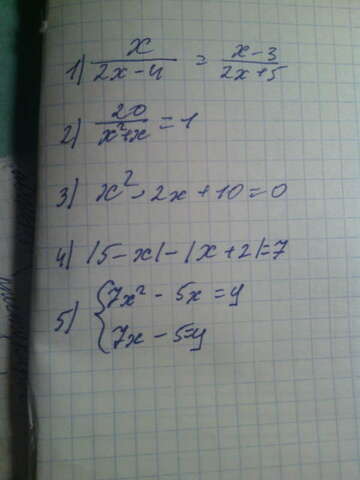 1) x/(2x-4) = (x-3)/(2x+5)
2) 20/(x²+x) = 1
3) x² - 2x + 10 = 0
4) |5-x| - |x+2| = 7
5) { 7x² - 5x = y
7x - 5 = y